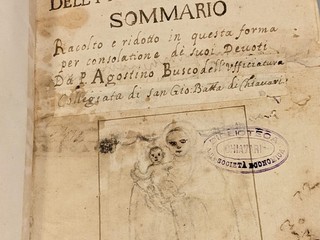 SOMMARIO
Racolto e ridotto in questa forma
per consolatione di suoi Devoti
Da P. Agostino Busco dell'officiatura
Collegiata di San Gio: Batta di Chiavari
BIBLIOTECA
CHIAVARI
SOCIETÀ ECONOMICA